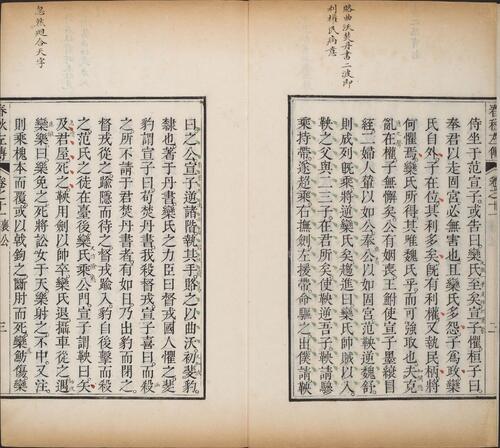 賂曲沃焚丹書二波即
利權民柄意
春秋左傳
侍坐于范宣子或告曰欒氏至矣宣子懼桓子曰
奉君以走固宮必無害也且欒氏多怨子為政欒
氏自外子在位其利多矣既有利權又執民柄將
何懼焉欒氏所得其唯魏氏乎而可強取也夫克
亂在權子無懈矣公有姻喪王鮒使宣子墨縗冒
絰二婦人輦以如公奉公以如固宮范鞅逆魏舒
則成列既乘將逆欒氏矣趨進曰欒氏帥賊以入
鞅之父與二三子在君所矣使鞅逆吾子鞅請驂
乘持帶遂超乘右撫劍左援帶命驅之出僕請鞅
曰之公宣子逆諸階執其手賂之以曲沃初斐豹
隸也著于丹書欒氏之力臣曰督戎國人懼之斐
豹謂宣子曰苟焚丹書我殺督戎宣子喜曰而殺
之所不請于君焚丹書者有如日乃出豹而閉之
督戎從之踰隱而待之督戎踰入豹自後擊而殺
之范氏之徒在臺後欒氏乘公門宣子謂鞅曰矢
及君屋死之鞅用劍以帥卒欒氏退攝車從之遇
欒樂曰樂免之死將訟女于天樂射之不中又注
則乘槐本而覆或以戟鉤之斷肘而死欒魴傷欒
春秋左傳 卷二十一 襄公 三